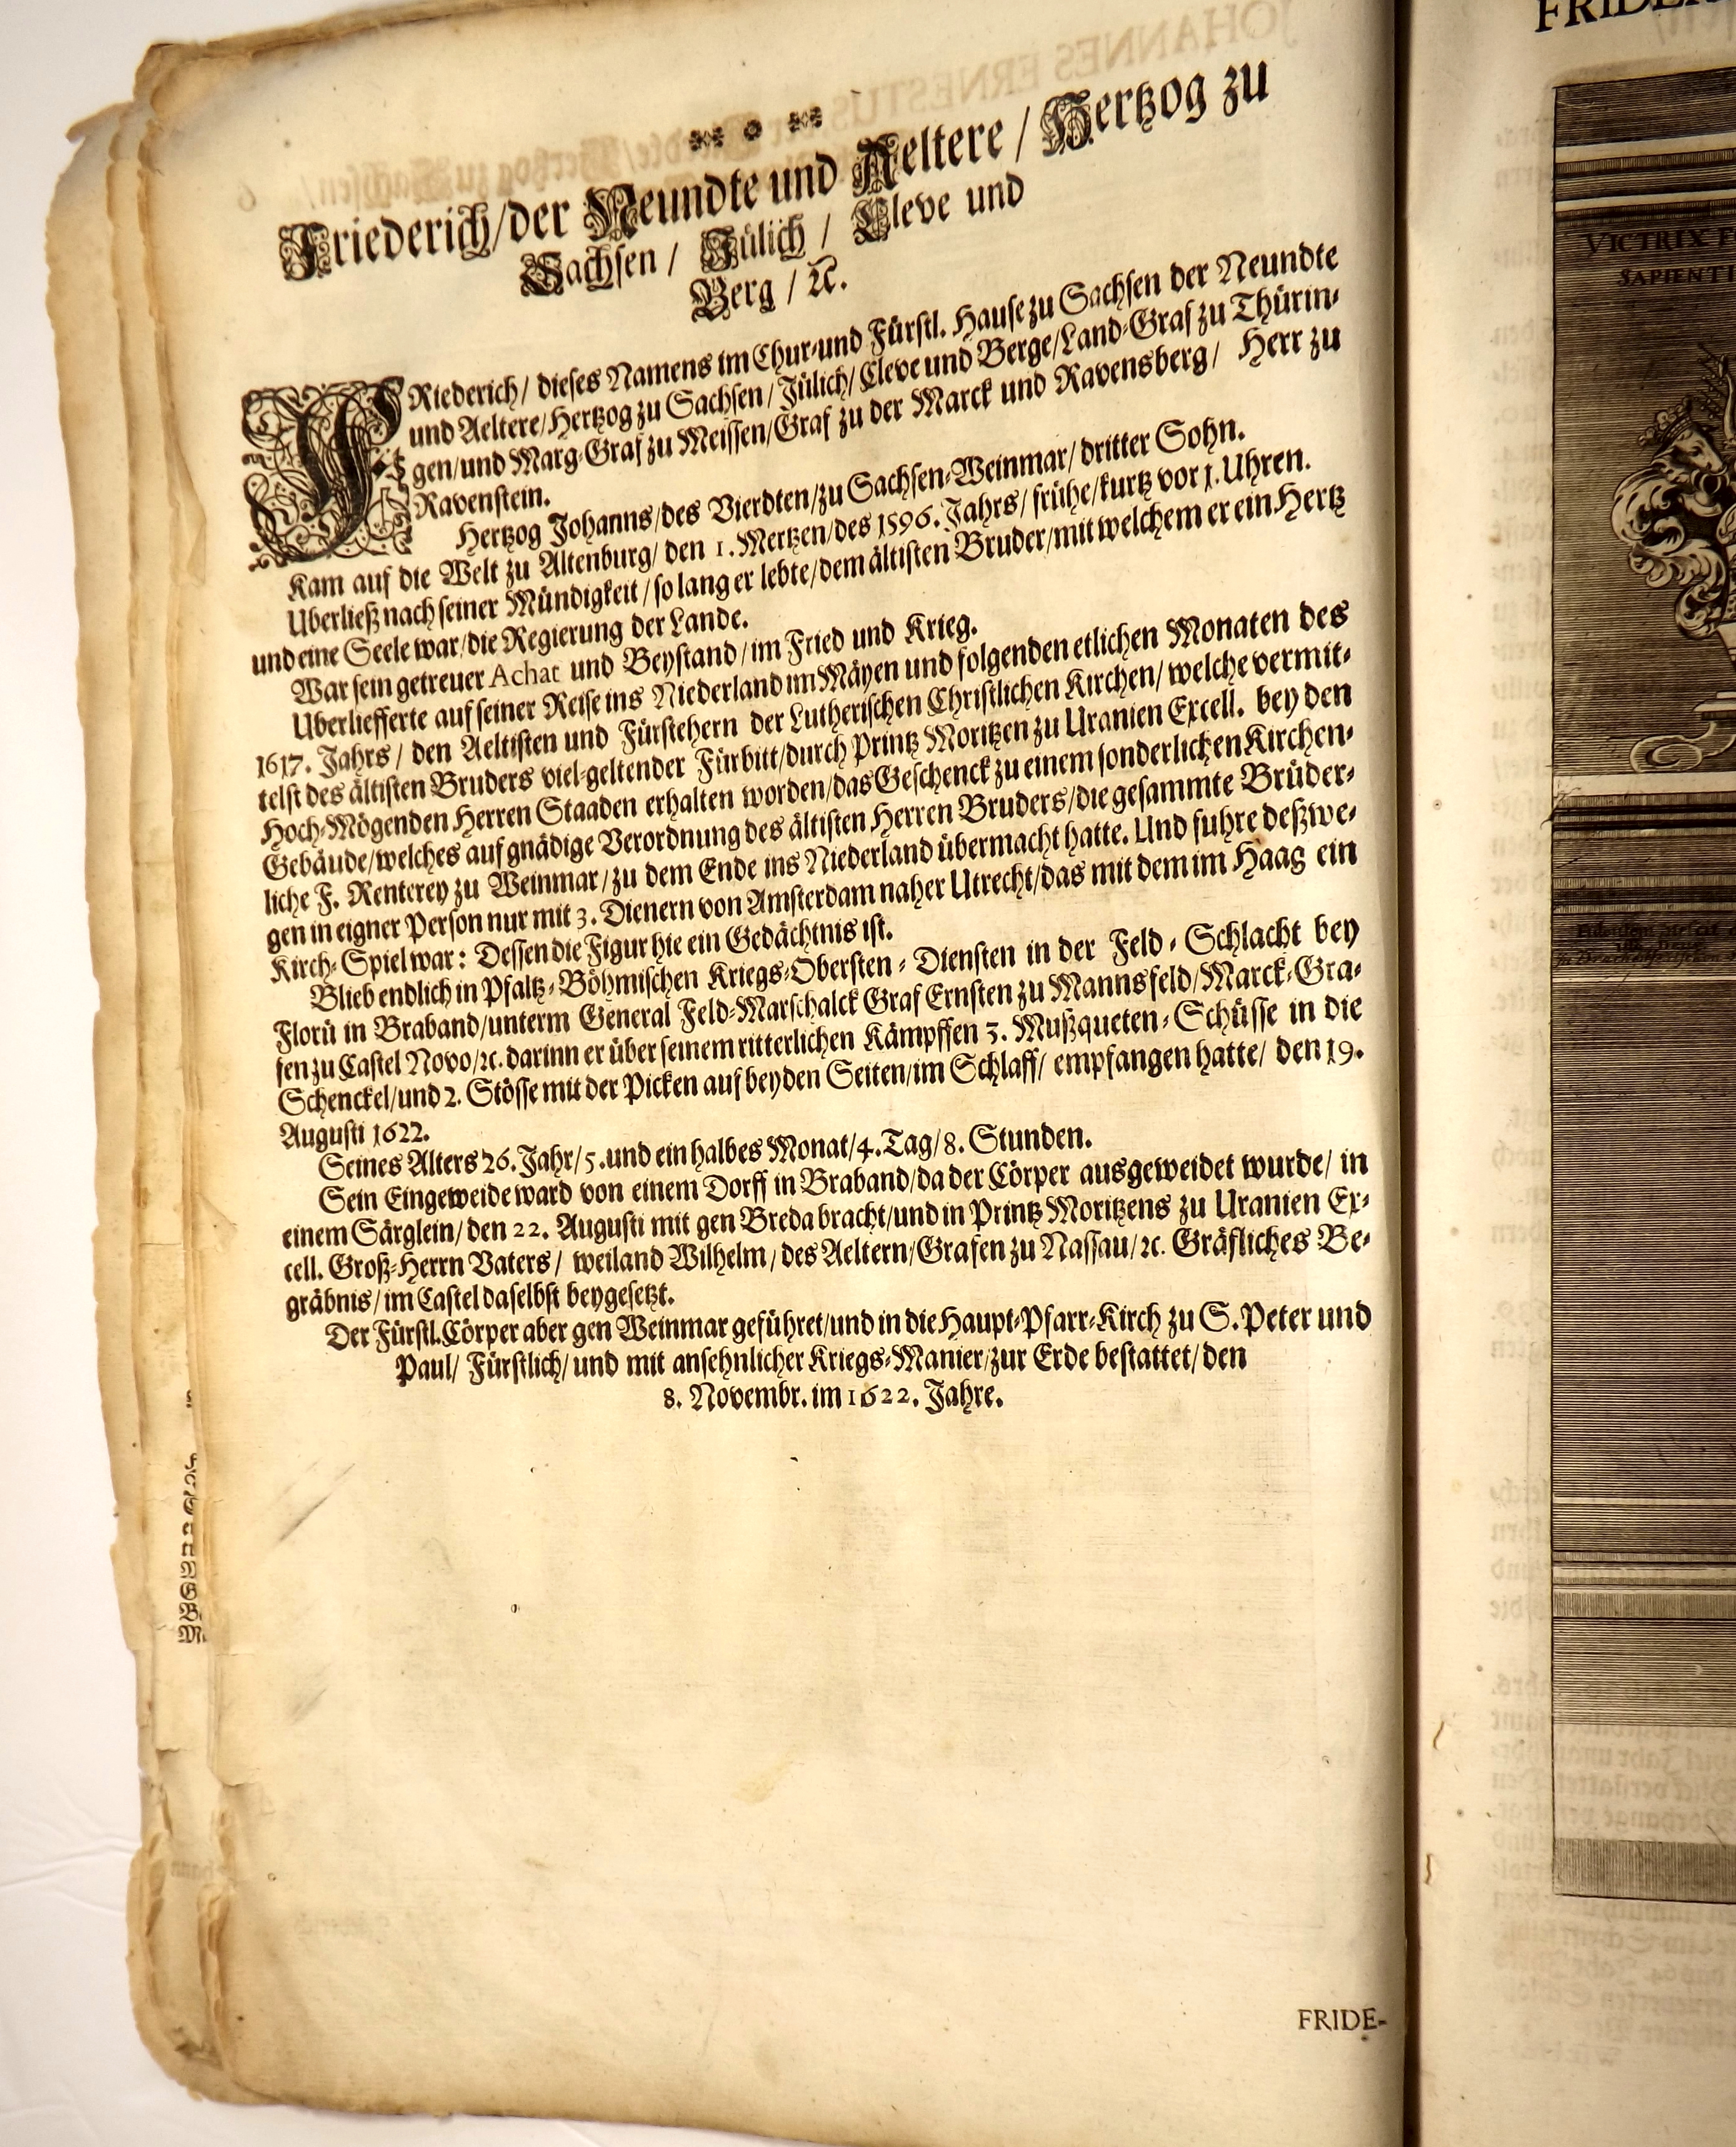 Friederich/der Neundte und Aeltere/Hertzog zu
Sachsen/Jülich/Cleve und
Berg/ꝛc.
FRiederich/dieses Namens im Chur-und Fürstl. Hause zu Sachsen der Neundte
und Aeltere/Hertzog zu Sachsen/Jülich/Cleve und Berge/Land-Graf zu Thürin-
gen/und Marg-Graf zu Meissen/Graf zu der Marck und Ravensberg/Herr zu
Ravenstein.
Hertzog Johanns/des Vierdten/zu Sachsen-Weinmar/dritter Sohn.
Kam auf die Welt zu Altenburg/den 1. Mertzen/des 1596. Jahrs/frühe/kurtz vor 1. Uhren.
Uberließ nach seiner Mündigkeit/so lang er lebte/dem ältisten Bruder/mit welchem er ein Hertz
und eine Seele war/die Regierung der Lande.
War sein getreuer Achat und Beystand/im Fried und Krieg.
Uberliefferte auf seiner Reise ins Niederland im Mäyen und folgenden etlichen Monaten des
1617. Jahrs/den Aeltisten und Fürstehern der Lutherischen Christlichen Kirchen/welche vermit-
telst des ältisten Bruders viel-geltender Fürbitt/durch Printz Moritzen zu Uranien Excell. bey den
Hoch-Mögenden Herren Staaden erhalten worden/das Geschenck zu einem sonderlichen Kirchen-
Gebäude/welches auf gnädige Verordnung des ältisten Herren Bruders/die gesammte Brüder-
liche F. Renterey zu Weinmar/zu dem Ende ins Niederland übermacht hatte. Und fuhre deßwe-
gen in eigner Person nur mit 3. Dienern von Amsterdam naher Utrecht/das mit dem im Haag ein
Kirch-Spiel war: Dessen die Figur hie ein Gedächtnis ist.
Blieb endlich in Pfaltz-Böhmischen Kriegs-Obersten-Diensten in der Feld-Schlacht bey
Florü in Braband/unterm General Feld-Marschalck Graf Ernsten zu Mannsfeld/Marck-Gra-
fen zu Castel Novo/ꝛc. darinn er über seinem ritterlichen Kämpffen 3. Mußqueten-Schüsse in die
Schenckel/und 2. Stösse mit der Picken auf beyden Seiten/im Schlaff/empfangen hatte/den 19.
Augusti 1622.
Seines Alters 26. Jahr/5. und ein halbes Monat/4. Tag/8. Stunden.
Sein Eingeweide ward von einem Dorff in Braband/da der Cörper ausgeweidet wurde/in
einem Särglein/den 22. Augusti mit gen Breda bracht/und in Printz Moritzens zu Uranien Ex-
cell. Groß-Herrn Vaters/weiland Wilhelm/des Aeltern/Grafen zu Nassau/ꝛc. Gräfliches Be-
gräbnis/im Castel daselbst beygesetzt.
Der Fürstl. Cörper aber gen Weinmar geführet/und in die Haupt-Pfarr-Kirch zu S. Peter und
Paul/Fürstlich/und mit ansehnlicher Kriegs-Manier/zur Erde bestattet/den
8. Novembr. im 1622. Jahre.
FRIDE-
VICTRIX
SAPIENTI